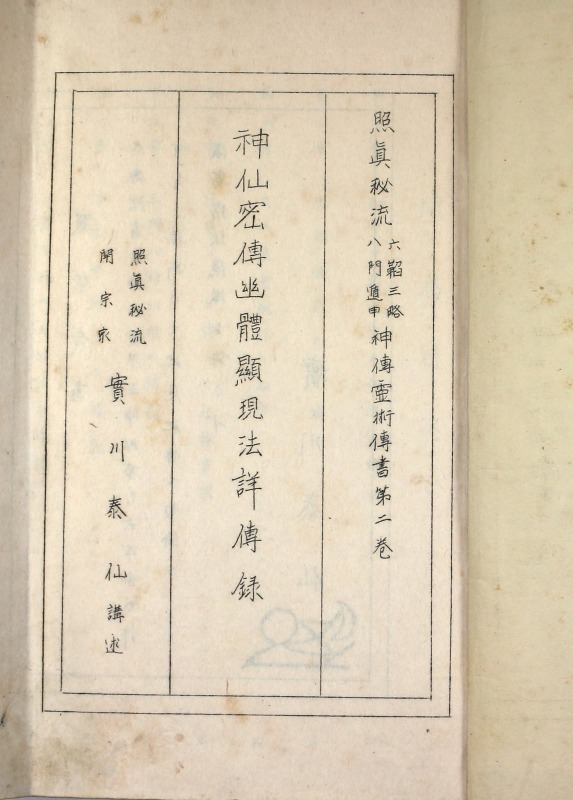 照眞秘流
六韜三略
八門遁甲
神傳霊術傳書第二巻
神仙密傳幽體顯現法詳傳録
照眞秘流
開宗家
實川泰仙講述